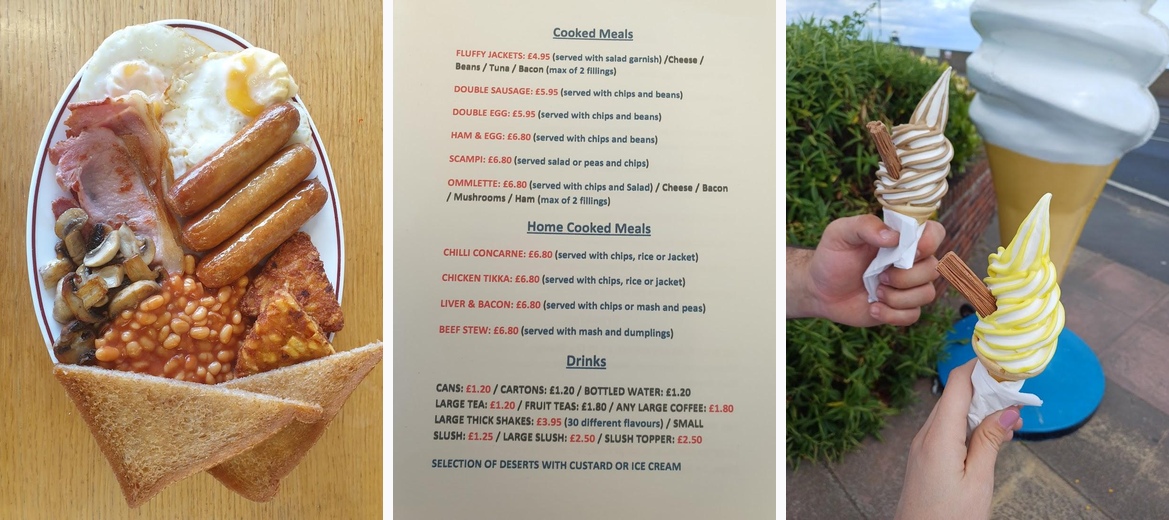 Cooked Meals
FLUFFY JACKETS: £4.95 (served with salad garnish) /Cheese /
Beans / Tuna / Bacon (max of 2 fillings)
DOUBLE SAUSAGE: £5.95 (served with chips and beans)
DOUBLE EGG: £5.95 (served with chips and beans)
HAM & EGG: £6.80 (served with chips and beans)
SCAMPI: £6.80 (served salad or peas and chips)
OMMLETTE: £6.80 (served with chips and Salad) / Cheese / Bacon
/ Mushrooms / Ham (max of 2 fillings)
Home Cooked Meals
CHILLI CONCARNE: £6.80 (served with chips, rice or Jacket)
CHICKEN TIKKA: £6.80 (served with chips, rice or jacket)
LIVER & BACON: £6.80 (served with chips or mash and peas)
BEEF STEW: £6.80 (served with mash and dumplings)
Drinks
CANS: £1.20 / CARTONS: £1.20 / BOTTLED WATER: £1.20
LARGE TEA: £1.20 / FRUIT TEAS: £1.80 / ANY LARGE COFFEE: £1.80
LARGE THICK SHAKES: £3.95 (30 different flavours) / SMALL
SLUSH: £1.25 / LARGE SLUSH: £2.50 / SLUSH TOPPER: £2.50
SELECTION OF DESERTS WITH CUSTARD OR ICE CREAM